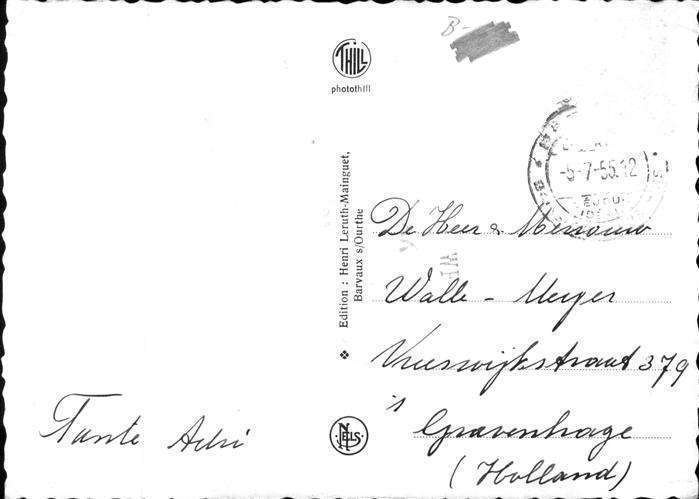 B-
THILL
photothill
Edition : Henri Leruth-Mainguet,
Barvaux s/Ourthe
-5-7-55.12
De Heer & Mevrouw
Walle - Meyer
Vreeswijkstraat 379
's Gravenhage
(Holland)
Tante Adri
NELS